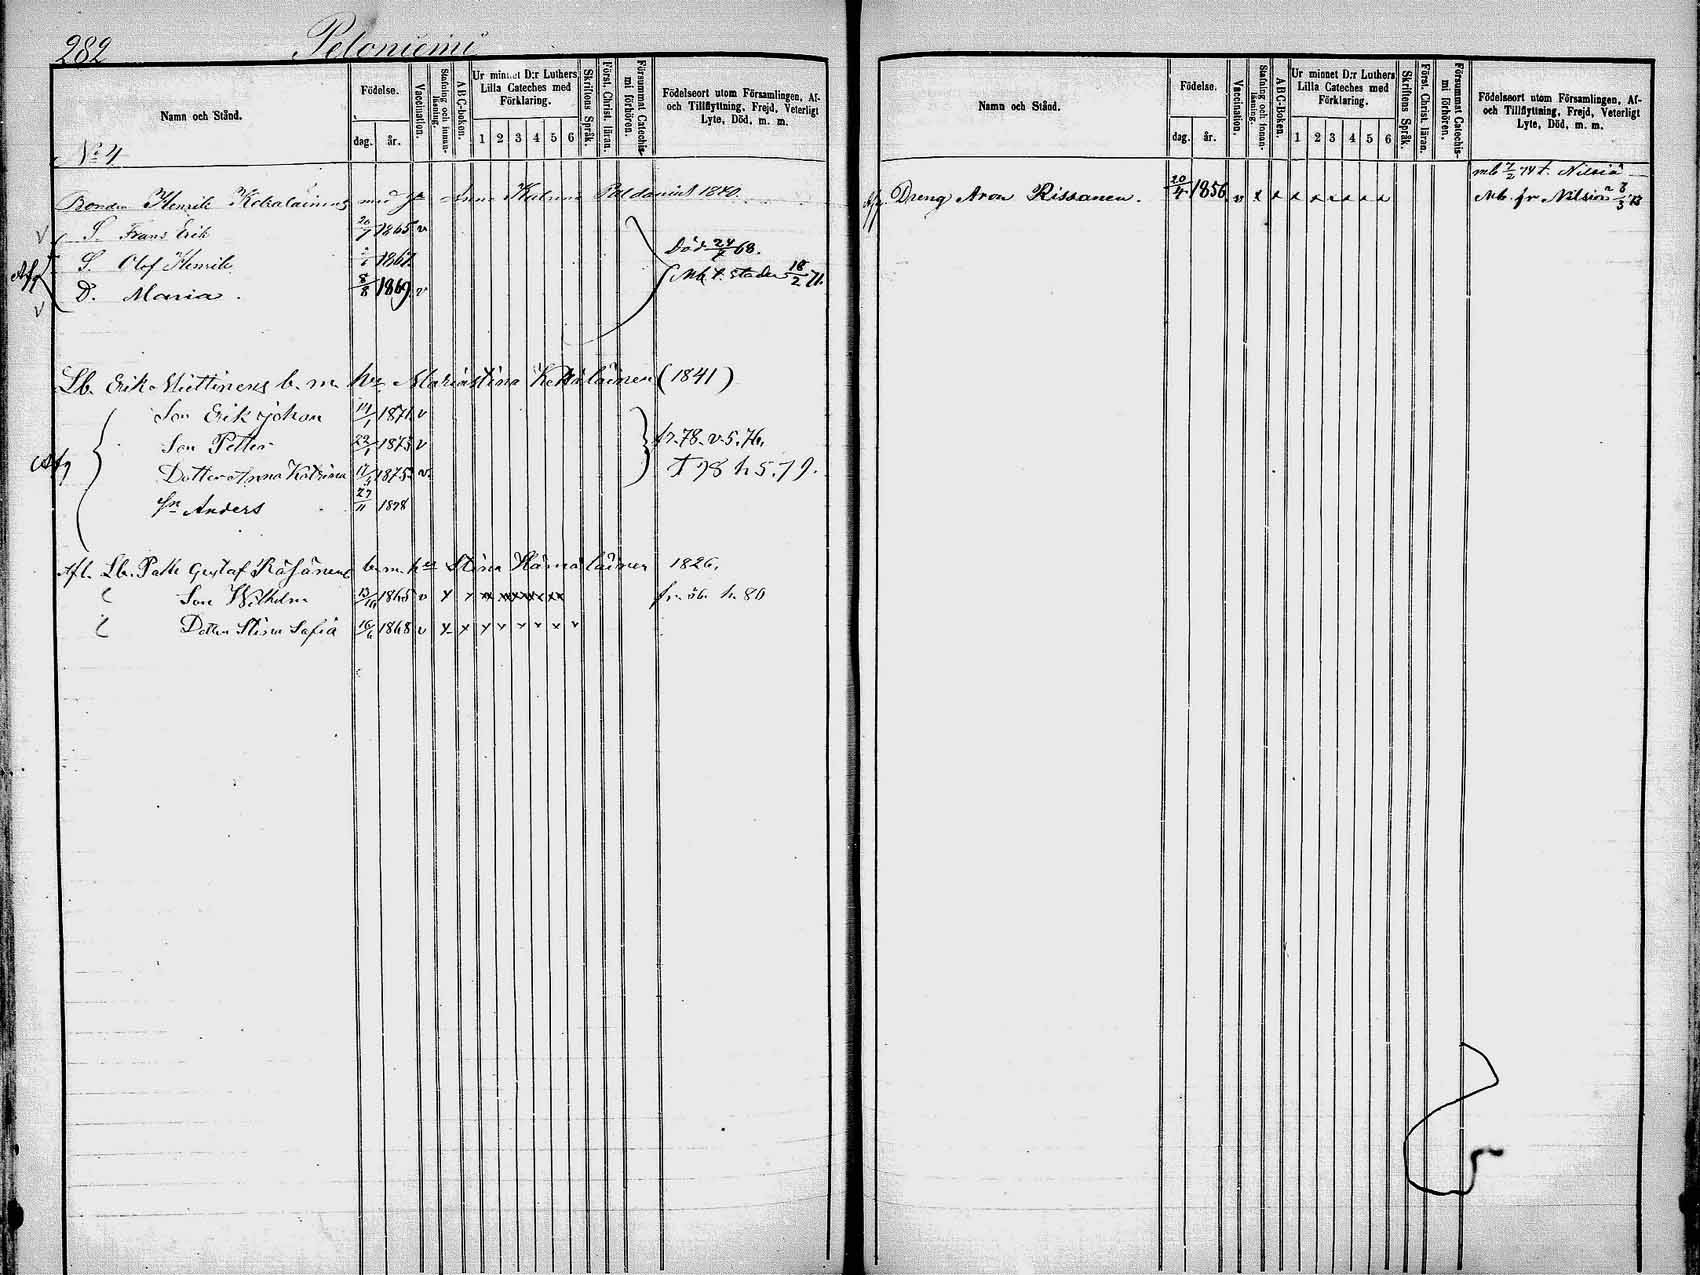 282 Peloniemi
Namn och Stånd.
Födelse.
dag. år.
Vaccination.
Stafning och innan-läsning.
A B C-boken.
Ur minnet D:r Luthers Lilla Cateches med Förklaring.
1 2 3 4 5 6
Skriftens Språk.
Först. Christ. läran.
Försummat Catechismi förhören.
Födelseort utom Församlingen, Af- och Tillflyttning, Frejd, Veterligt Lyte, Död, m. m.
No 4
Bonden Henrik Kekäläinens med h:u Anna Katrina 1840.
S. Frans Erik 20/7 1865 v
S. Olof Henrik 1867 Död 24/7 68.
Afg D. Maria. 8/8 1869 v Mb t. staden 18/2 71.
Lb. Erik Miettinens b. m. h:u Maria Stina Kekäläinen (1841)
Son Erik Johan 14/1 1871 v
Son Petter 22/1 1873 v fr. 78. v. 5. 76.
Afg Dotter Anna Katrina 17/3 1875 v T 98 h 5. 79.
Sn Anders 27/11 1878
Afl. Lb. Gustaf Räsänens b. m. h:u Stina Hämäläinen 1826.
Son Wilhelm 13/10 1865 v x x x x x x x x h. 80
Dotter Stina Sofia 16/6 1868 v x x x x x x x x
Namn och Stånd.
Födelse.
dag. år.
Vaccination.
Stafning och innan-läsning.
A B C-boken.
Ur minnet D:r Luthers Lilla Cateches med Förklaring.
1 2 3 4 5 6
Skriftens Språk.
Först. Christ. läran.
Försummat Catechismi förhören.
Födelseort utom Församlingen, Af- och Tillflyttning, Frejd, Veterligt Lyte, Död, m. m.
mb 7/2 74 t. Nilsiä
Afg Dreng Aron Rissanen. 20/4 1856 v x x x x x x x x Mb. fr Nilsiä 8/3 73